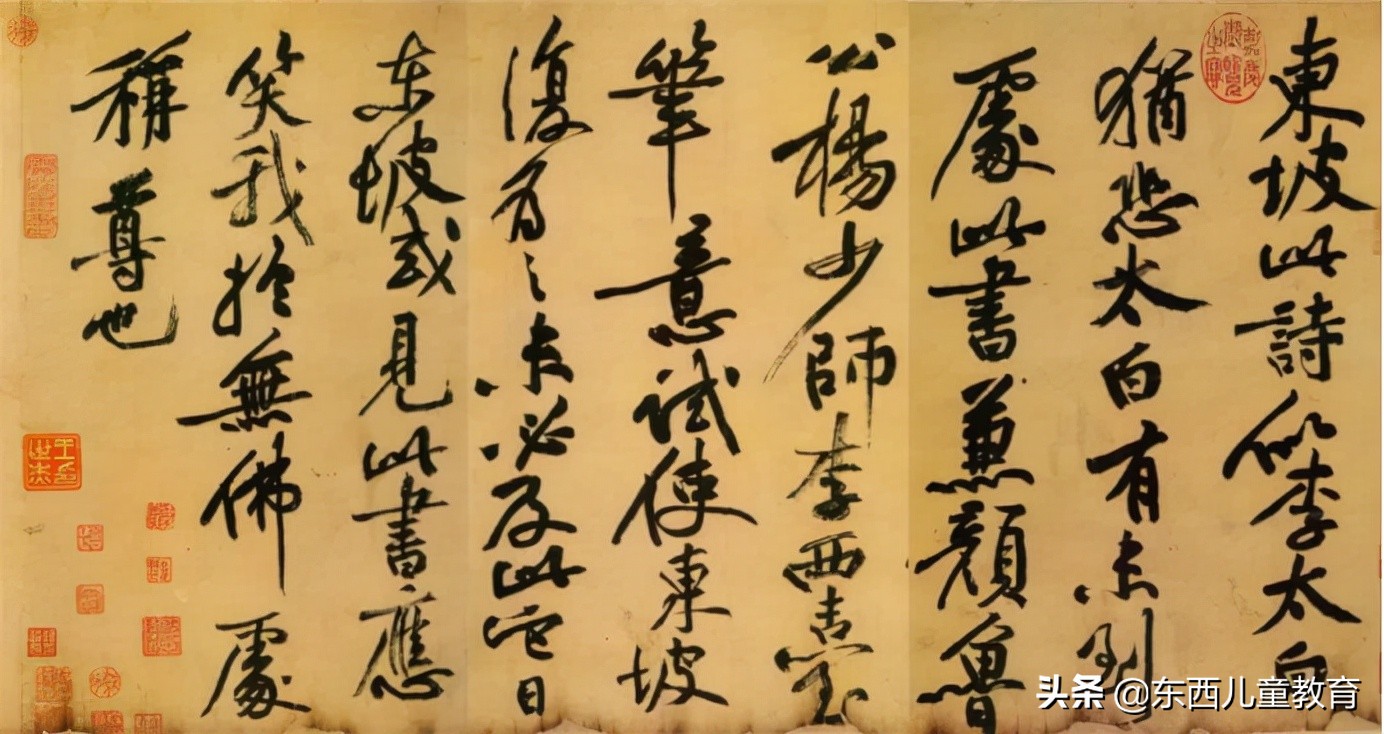 東坡此詩似李太白
猶恐太白有未到
處此書兼顏魯
公楊少師李西臺
筆意試使東坡
復為之未必及此它日
東坡或見此書應
笑我於無佛處
稱尊也
头条 @东西儿童教育